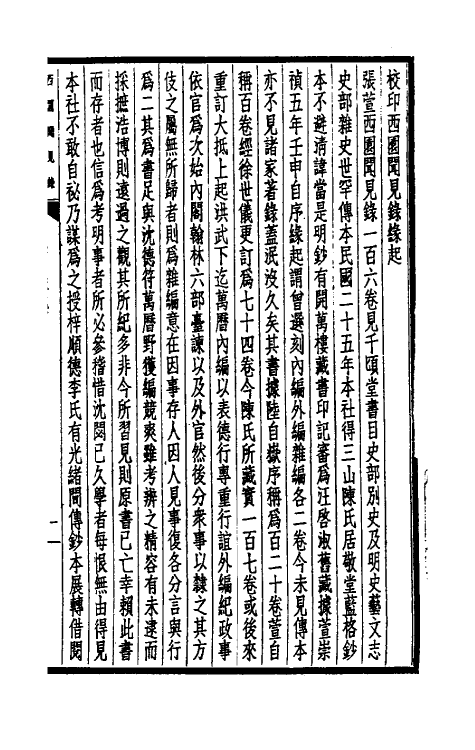 校印西園聞見錄緣起
張萱西園聞見錄一百六卷見千頃堂書目史部別史及明史藝文志
史部雜史世罕傳本民國二十五年本社得三山陳氏居敬堂藍格鈔
本不避清諱當是明鈔有開萬樓藏書印記審爲汪啓淑舊藏據萱崇
禎五年壬申自序緣起謂曾選刻內編外編雜編各二卷今未見傳本
亦不見諸家著錄蓋泯沒久矣其書據陸自嶽序稱爲百二十卷萱自
稱百卷經徐世儀更訂爲七十四卷今陳氏所藏實一百七卷或後來
重訂大抵上起洪武下迄萬曆內編以表德行專重行誼外編紀政事
依官爲次始內閣翰林六部臺諫以及外官然後分衆事以隸之其方
伎之屬無所歸者則爲雜編意在因事存人因人見事復各分言與行
爲二其爲書足與沈德符萬曆野獲編競爽雖考辨之精容有未逮而
採摭浩博則遠過之觀其所紀多非今所習見則原書已亡幸賴此書
而存者也信爲考明事者所必參稽惜沈閟已久學者每恨無由得見
本社不敢自祕乃謀爲之授梓順德李氏有光緒間傳鈔本展轉借閱
西園聞見錄
一